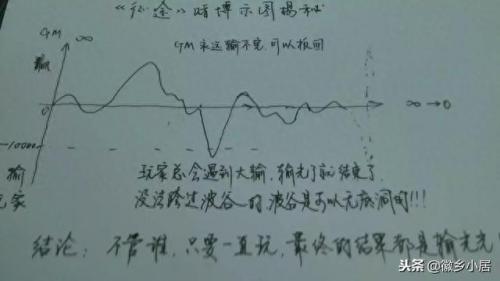 《征途》赌博示图揭秘
GM ∞
GM永远输不完,可以板回
输
0
∞→0
-10000
输
玩家
玩家总会遇到大输,输光了就结束了
没法跨过波谷,的波谷是可以无底洞的!!!
结论:不管谁,只要一直玩,最终的结果都是输光光!
头条@徽乡小居